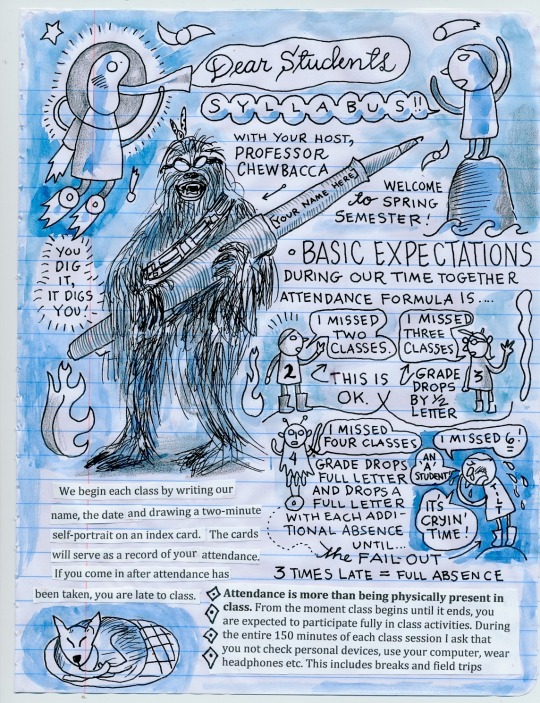 Dear Students
SYLLABUS!!
WITH YOUR HOST,
PROFESSOR
CHEWBACCA
YOUR NAME HERE
WELCOME
to SPRING
SEMESTER!
YOU
DIG
IT,
IT DIGS
YOU!
• BASIC EXPECTATIONS
DURING OUR TIME TOGETHER
ATTENDANCE FORMULA IS....
I MISSED
TWO
CLASSES.
2
THIS IS
OK.
I MISSED
THREE
CLASSES
3
GRADE
DROPS
BY 1/2
LETTER
I MISSED
FOUR CLASSES
4
GRADE DROPS
FULL LETTER
AND DROPS A
FULL LETTER
WITH EACH ADDI-
TIONAL ABSENCE
UNTIL...
the FAIL-OUT
I MISSED 6!
AN
'A'
STUDENT!
ITS
CRYIN'
TIME!
3 TIMES LATE = FULL ABSENCE
We begin each class by writing our
name, the date and drawing a two-minute
self-portrait on an index card. The cards
will serve as a record of your attendance.
If you come in after attendance has
been taken, you are late to class.
Attendance is more than being physically present in
class. From the moment class begins until it ends, you
are expected to participate fully in class activities. During
the entire 150 minutes of each class session I ask that
you not check personal devices, use your computer, wear
headphones etc. This includes breaks and field trips